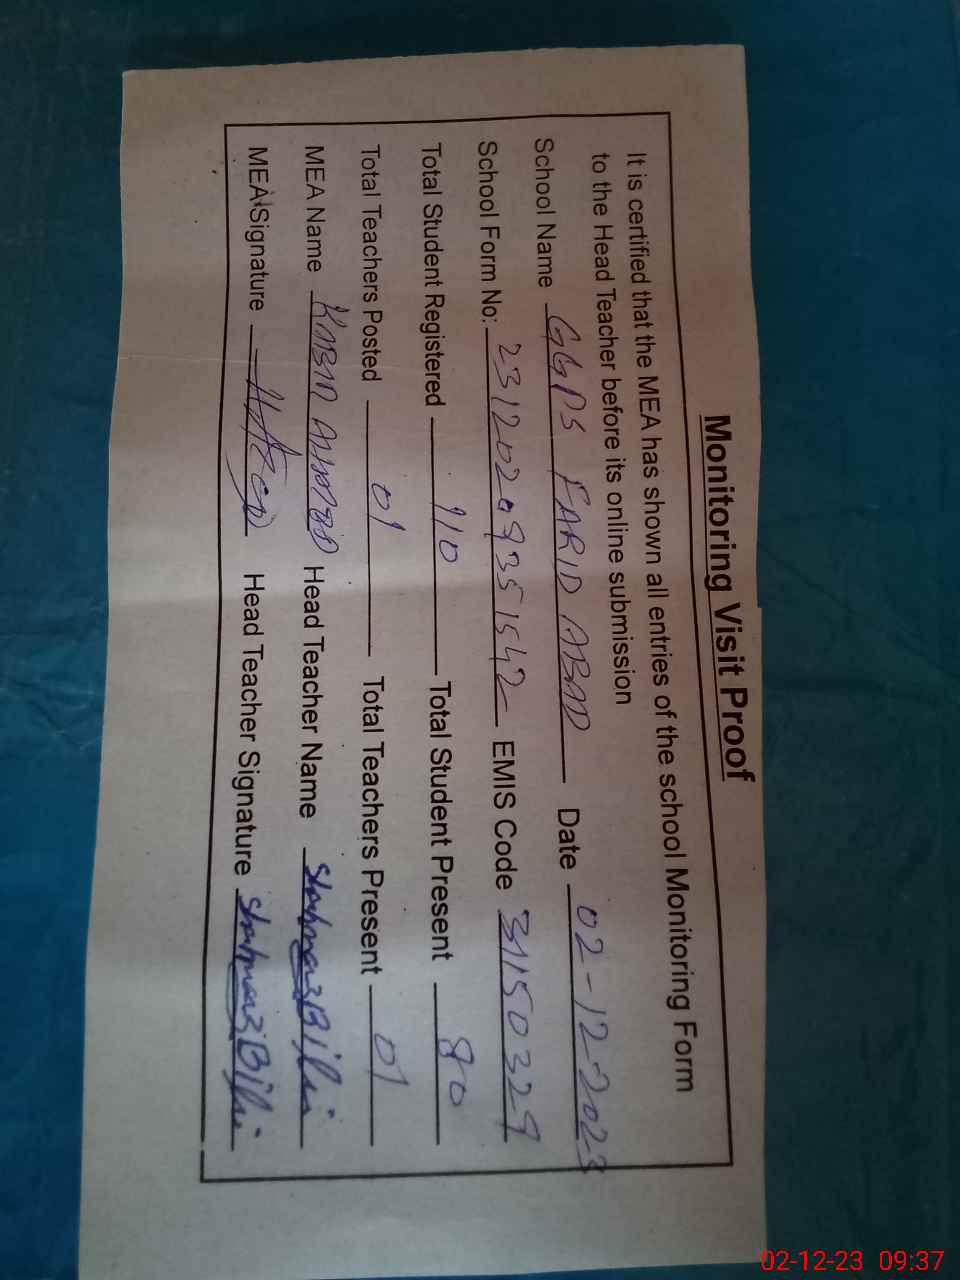 Monitoring Visit Proof
It is certified that the MEA has shown all entries of the school Monitoring Form
to the Head Teacher before its online submission
School Name GGPS FARID ABAD Date 02-12-2023
School Form No: EMIS Code 31150329
Total Student Registered 110 Total Student Present 80
Total Teachers Posted 01 Total Teachers Present 01
MEA Name Head Teacher Name Shahnaz Bibi
MEA Signature Head Teacher Signature Shahnaz Bibi
02-12-23 09:37